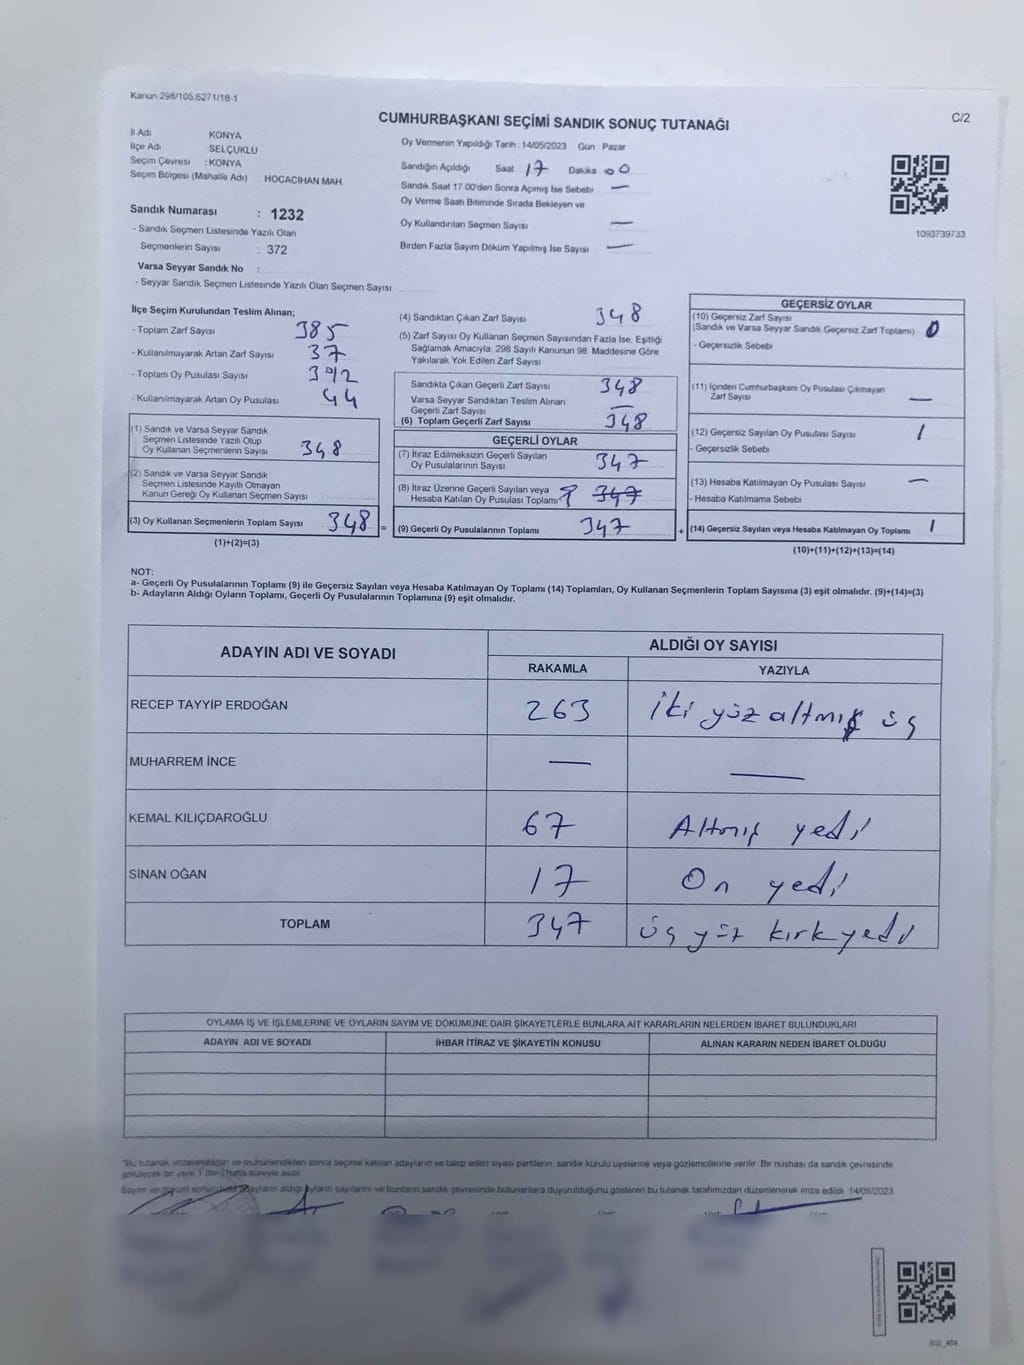 Kanun 298/105,6271/18-1
CUMHURBAŞKANI SEÇİMİ SANDIK SONUÇ TUTANAĞI
C/2
İl Adı KONYA
İlçe Adı SELÇUKLU
Seçim Çevresi : KONYA
Seçim Bölgesi (Mahalle Adı) : HOCACİHAN MAH.
Sandık Numarası : 1232
- Sandık Seçmen Listesinde Yazılı Olan
Seçmenlerin Sayısı : 372
Varsa Seyyar Sandık No :
- Seyyar Sandık Seçmen Listesinde Yazılı Olan Seçmen Sayısı
Oy Vermenin Yapıldığı Tarih : 14/05/2023 Gün : Pazar
Sandığın Açıldığı Saat 17 Dakika 00
Sandık Saat 17:00'den Sonra Açımış İse Sebebi —
Oy Verme Saati Bitiminde Sırada Bekleyen ve
Oy Kullandırılan Seçmen Sayısı —
Birden Fazla Sayım Döküm Yapılmış İse Sayısı —
1093739733
İlçe Seçim Kurulundan Teslim Alınan;
- Toplam Zarf Sayısı 385
- Kullanılmayarak Artan Zarf Sayısı 37
- Toplam Oy Pusulası Sayısı 392
- Kullanılmayarak Artan Oy Pusulası 44
(1) Sandık ve Varsa Seyyar Sandık
Seçmen Listesinde Yazılı Olup
Oy Kullanan Seçmenlerin Sayısı 348
(2) Sandık ve Varsa Seyyar Sandık
Seçmen Listesinde Kayıtlı Olmayan
Kanun Gereği Oy Kullanan Seçmen Sayısı
(3) Oy Kullanan Seçmenlerin Toplam Sayısı 348 =
(1)+(2)=(3)
(4) Sandıktan Çıkan Zarf Sayısı 348
(5) Zarf Sayısı Oy Kullanan Seçmen Sayısından Fazla İse, Eşitliği
Sağlamak Amacıyla, 298 Sayılı Kanunun 98. Maddesine Göre
Yakılarak Yok Edilen Zarf Sayısı
Sandıkta Çıkan Geçerli Zarf Sayısı 348
Varsa Seyyar Sandıktan Teslim Alınan
Geçerli Zarf Sayısı —
(6) Toplam Geçerli Zarf Sayısı 348
GEÇERLİ OYLAR
(7) İtiraz Edilmeksizin Geçerli Sayılan
Oy Pusulalarının Sayısı 347
(8) İtiraz Üzerine Geçerli Sayılan veya
Hesaba Katılan Oy Pusulası Toplamı 347
(9) Geçerli Oy Pusulalarının Toplamı 347 +
GEÇERSİZ OYLAR
(10) Geçersiz Zarf Sayısı
(Sandık ve Varsa Seyyar Sandık Geçersiz Zarf Toplamı) 0
- Geçersizlik Sebebi
(11) İçinden Cumhurbaşkanı Oy Pusulası Çıkmayan
Zarf Sayısı —
(12) Geçersiz Sayılan Oy Pusulası Sayısı 1
- Geçersizlik Sebebi
(13) Hesaba Katılmayan Oy Pusulası Sayısı —
- Hesaba Katılmama Sebebi
(14) Geçersiz Sayılan veya Hesaba Katılmayan Oy Toplamı 1
(10)+(11)+(12)+(13)=(14)
NOT:
a- Geçerli Oy Pusulalarının Toplamı (9) ile Geçersiz Sayılan veya Hesaba Katılmayan Oy Toplamı (14) Toplamları, Oy Kullanan Seçmenlerin Toplam Sayısına (3) eşit olmalıdır. (9)+(14)=(3)
b- Adayların Aldığı Oyların Toplamı, Geçerli Oy Pusulalarının Toplamına (9) eşit olmalıdır.
ADAYIN ADI VE SOYADI ALDIĞI OY SAYISI
RAKAMLA YAZIYLA
RECEP TAYYİP ERDOĞAN 263 iki yüz altmış üç
MUHARREM İNCE — —
KEMAL KILIÇDAROĞLU 67 Altmış yedi
SİNAN OĞAN 17 On yedi
TOPLAM 347 üç yüz kırk yedi
OYLAMA İŞ VE İŞLEMLERİNE VE OYLARIN SAYIM VE DÖKÜMÜNE DAİR ŞİKAYETLERLE BUNLARA AİT KARARLARIN NELERDEN İBARET BULUNDUKLARI
ADAYIN ADI VE SOYADI İHBAR İTİRAZ VE ŞİKAYETİN KONUSU ALINAN KARARIN NEDEN İBARET OLDUĞU
*Bu tutanak imzalandıktan ve mühürlendikten sonra seçime katılan adayların ve talep eden siyasi partilerin sandık kurulu üyelerine veya gözlemcilerine verilir. Bir nüshası da sandık çevresinde
görülecek bir yere 1 (bir) hafta süreyle asılır.
Sayım ve döküm sonucunda adayların aldığı oyların sayılarını ve bunların sandık çevresinde bulunanlara duyurulduğunu gösteren bu tutanak tarafımızdan düzenlenerek imza edildi. 14/05/2023